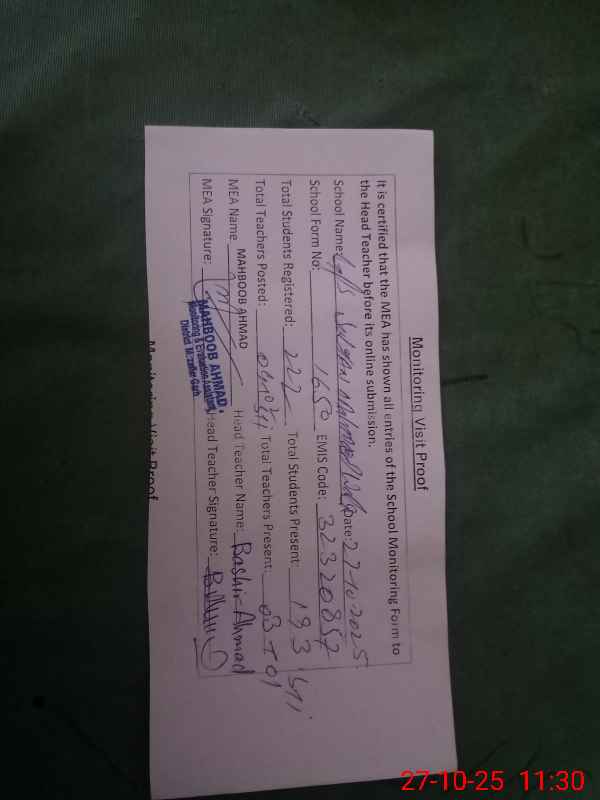 Monitoring Visit Proof
It is certified that the MEA has shown all entries of the School Monitoring Form to
the Head Teacher before its online submission.
School Name: Date: 27-10-2025
School Form No: 1650 EMIS Code: 32320857
Total Students Registered: 222 Total Students Present: 193
Total Teachers Posted: Total Teachers Present: 03+01
MEA Name MAHBOOB AHMAD Head Teacher Name: Bashir Ahmad
MEA Signature: Head Teacher Signature:
MAHBOOB AHMAD.
Monitoring & Evaluation Assistant
District Muzaffar Garh
Monitoring Visit Proof
27-10-25 11:30